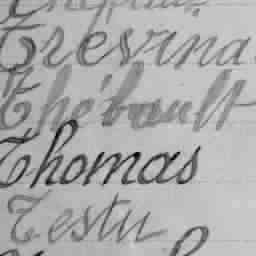 Trevina
Thébault
Thomas
Testu